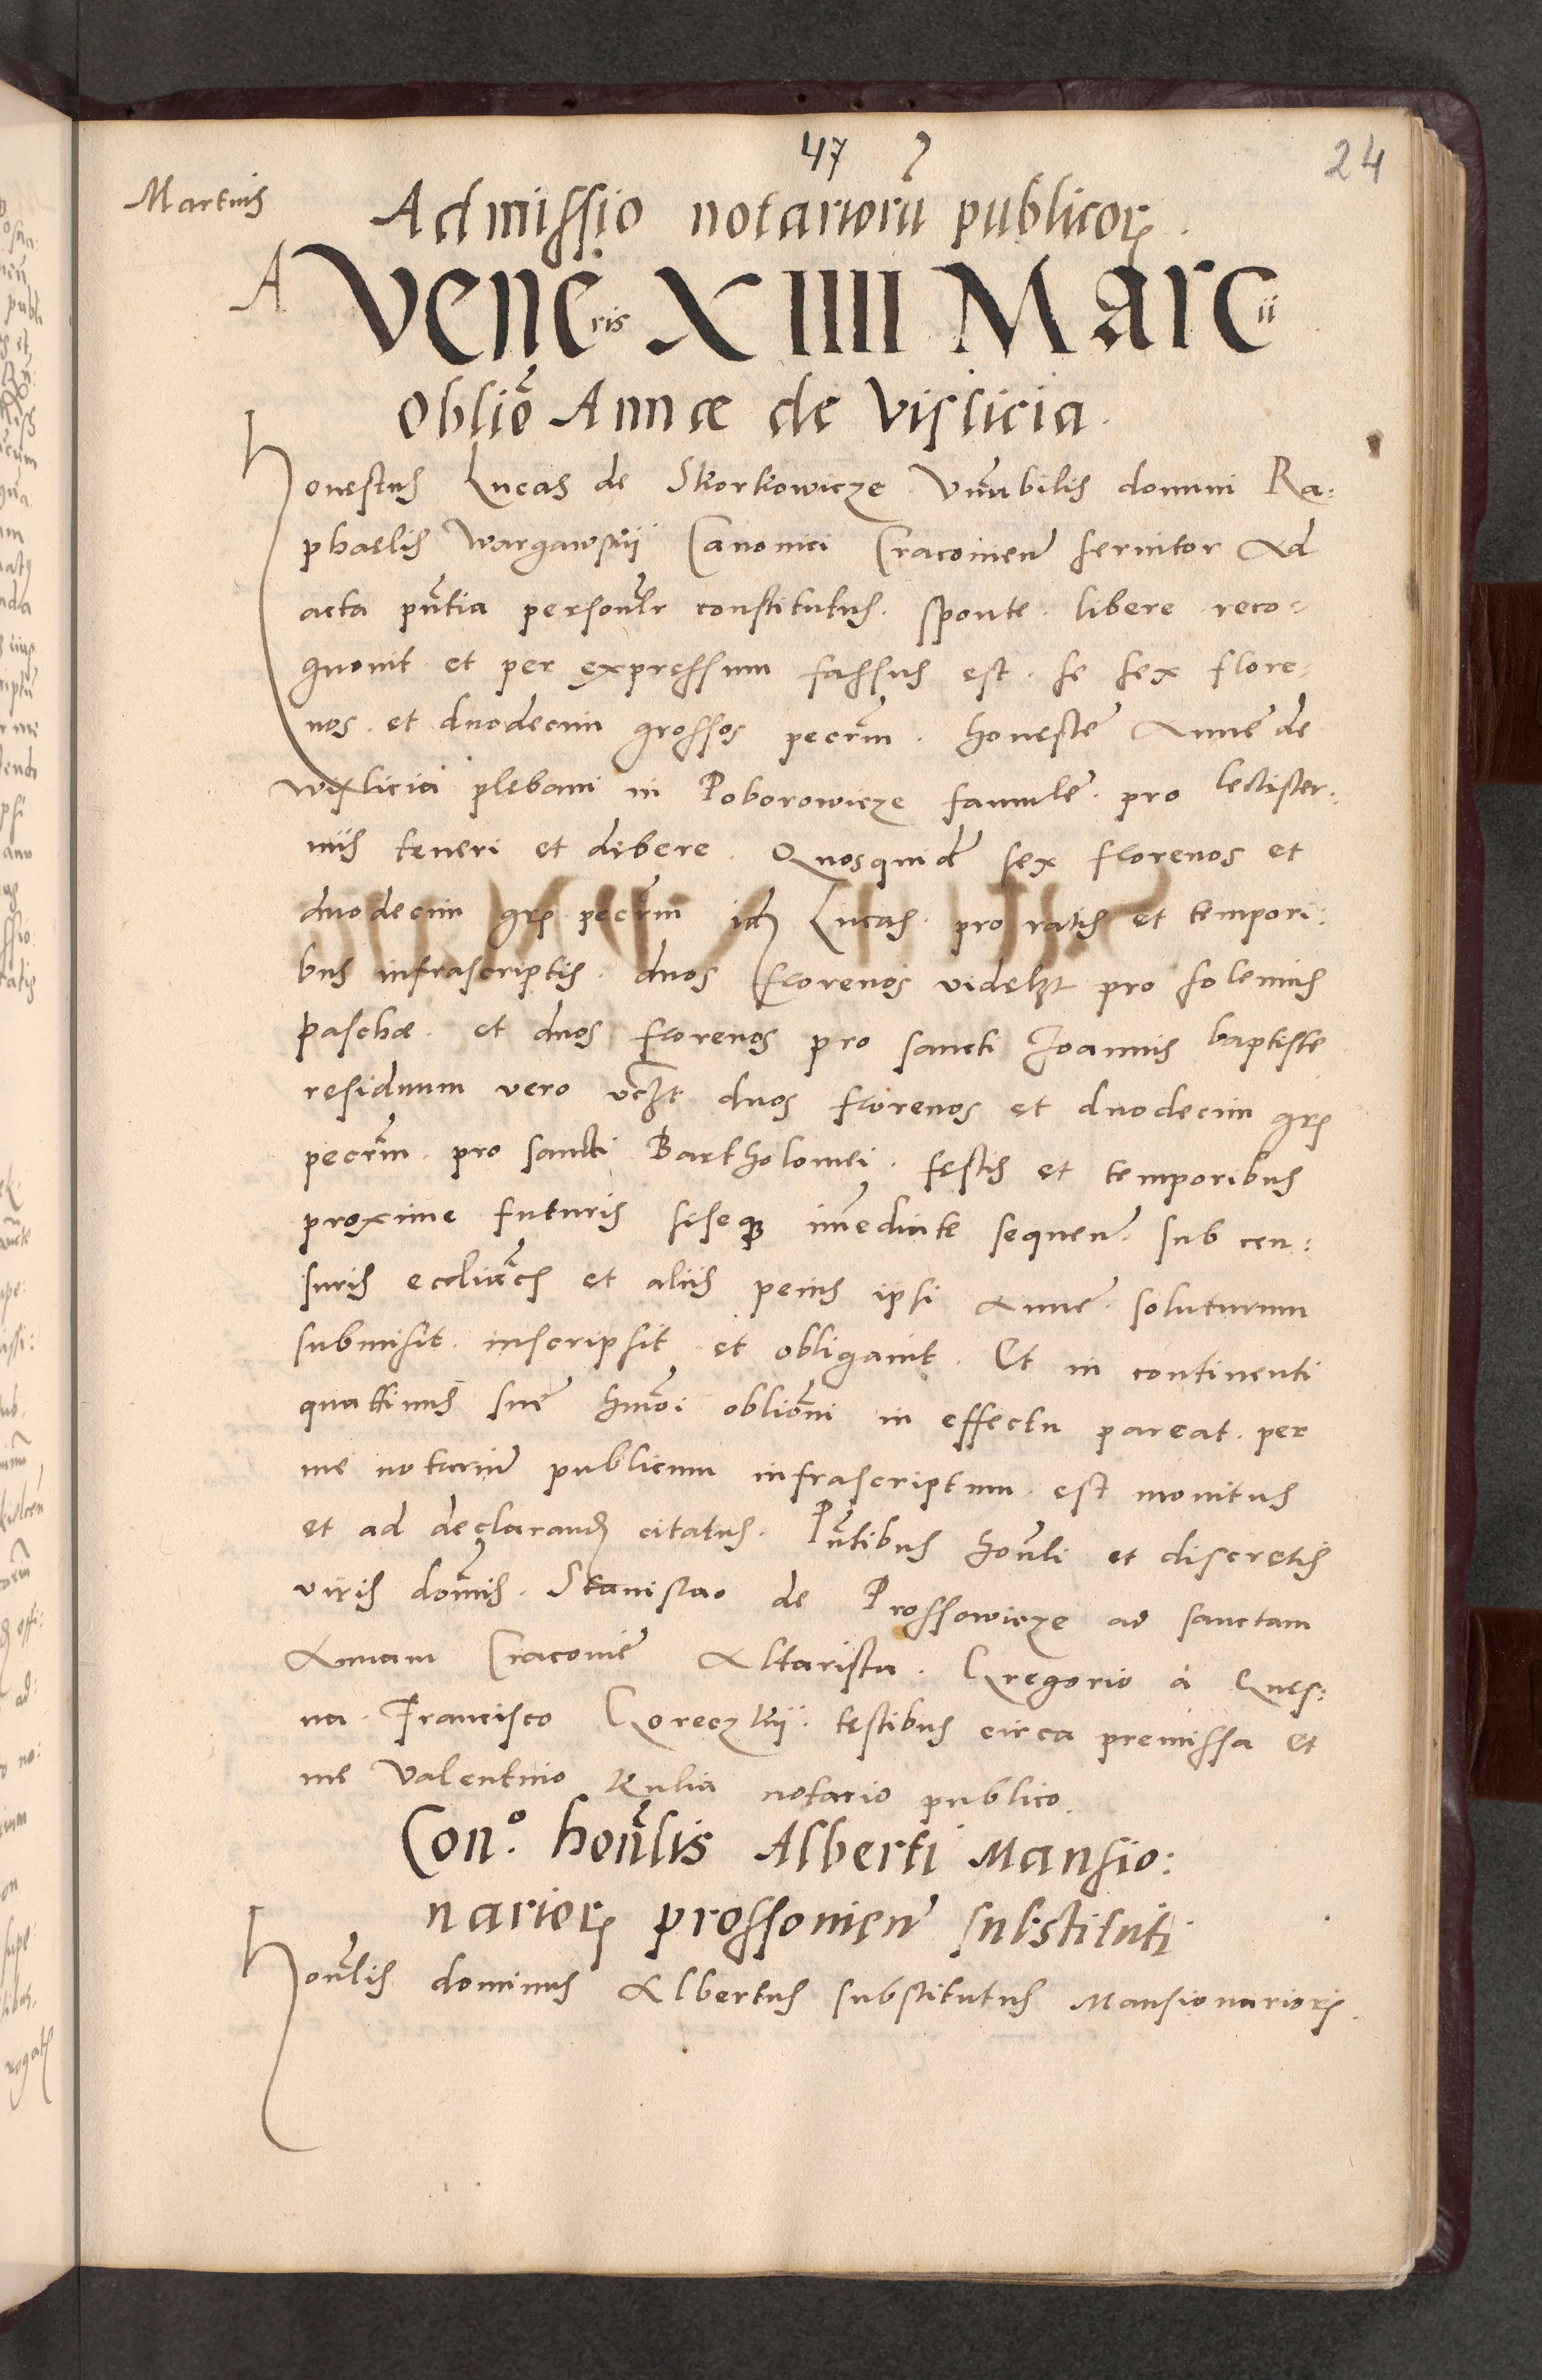 47
24
Martius
Admissio notariorũ publicoꝝ
A Veneris XIIII Marcii
Obliõ Annæ de Vislicia
Honestus Lucas de Skorkowicze Vn̄abilis domini Ra:
phaelis Wargawskij Canonici Cracovien̄ servitor Ad
acta pn̄tia person̄lr constitutus. sponte. libere reco:
gnovit et per expressum fassus est. se sex flore:
nos et duodecim grossos pecn̄m. honestẽ Annẽ de
Wislicia plebani in Poborowicze famulẽ. pro lectister:
niis teneri et debere. Quosquidẽ sex florenos et
duodecim grꝭ pecn̄m idẽ Lucas. pro ratis et tempori:
bus infrascriptis. duos florenos videlꝫt pro solenniis
paschæ. et duos florenos pro sancti Joannis baptiste
residuum vero vꝫlt duos florenos et duodecim grꝭ
pecn̄m. pro sancti Bartholomei. festis et temporibus
proxime futuris siseqꝫ im̄ediate sequen̄. sub cen:
suris eccliãcis et aliis penis ipsi Annẽ. soluturum
submisit. inscripsit et obligavit. Et in continenti
quattinus suẽ hm̄oi oblion̄i in effectu pareat. per
me notariũ publicum infrascriptum. est monitus
et ad declarandꝫ citatus. Pn̄tibus hon̄li et discretis
viris dom̄is. Stanislao de Prossowicze ad sanctam
Annam Cracoviẽ Altarista. Gregorio à Gnes:
na. Francisco Goreczkij. testibus circa premissa et
me Valentino Kulia notario publico.
Con.º hon̄lis Alberti Mansio:
narioꝝ prossovien̄ substituti
Hon̄lis dominus Albertus substitutus Mansionarioꝝ.